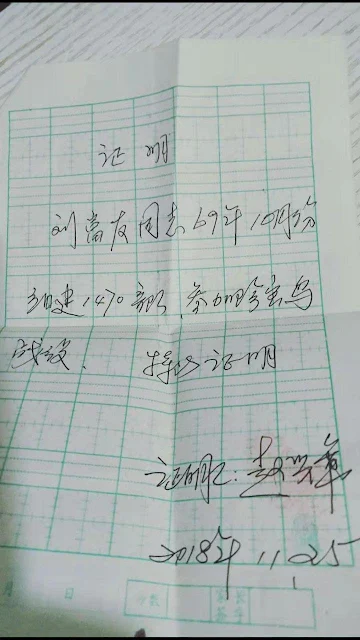 证明
刘富友同志69年10月份
组建1470部队.参加珍宝岛
战役. 特此证明
证明人:赵
2018年11.25
月 日